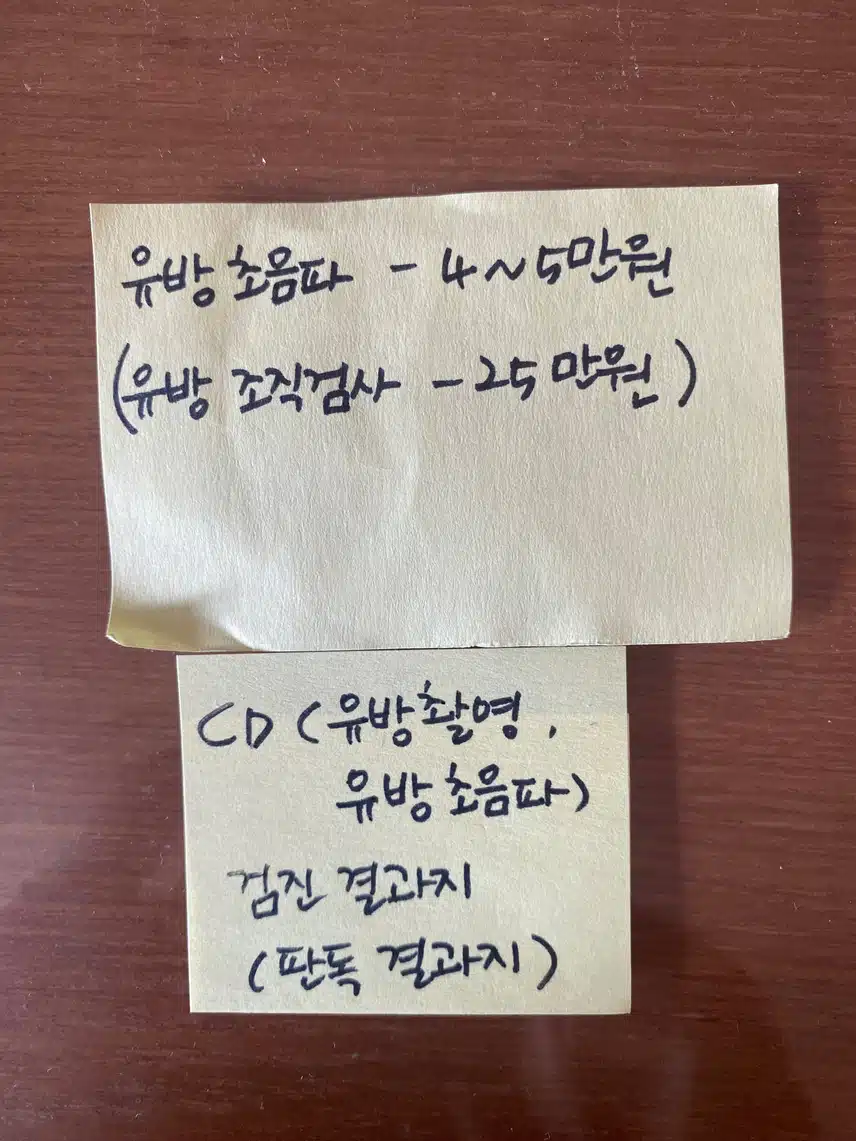 유방 초음파 - 4~5만원
(유방 조직검사 - 25만원)
CD (유방촬영,
유방 초음파)
검진 결과지
(판독 결과지)